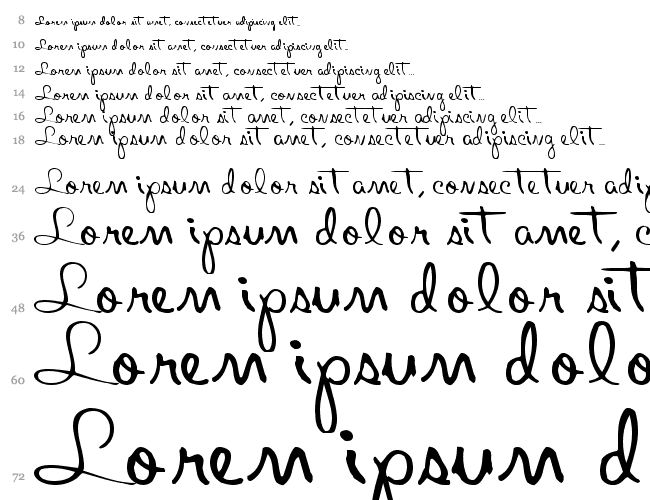 8 Lorem ipsum dolor sit amet, consectetuer adipiscing elit...
10 Lorem ipsum dolor sit amet, consectetuer adipiscing elit...
12 Lorem ipsum dolor sit amet, consectetuer adipiscing elit...
14 Lorem ipsum dolor sit amet, consectetuer adipiscing elit...
16 Lorem ipsum dolor sit amet, consectetuer adipiscing elit...
18 Lorem ipsum dolor sit amet, consectetuer adipiscing elit...
24 Lorem ipsum dolor sit amet, consectetuer adipi
36 Lorem ipsum dolor sit amet, c
48 Lorem ipsum dolor sit
60 Lorem ipsum dolo
72 Lorem ipsum d